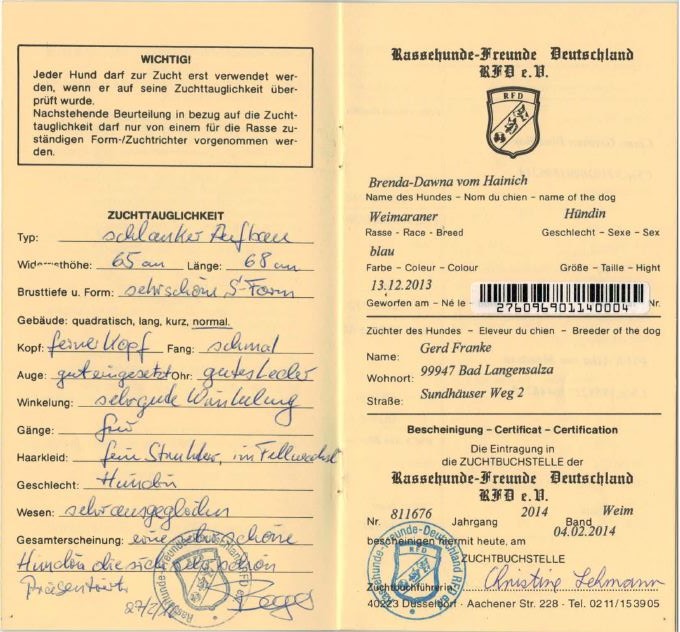 WICHTIG!
Jeder Hund darf zur Zucht erst verwendet wer-
den, wenn er auf seine Zuchttauglichkeit über-
prüft wurde.
Nachstehende Beurteilung in bezug auf die Zucht-
tauglichkeit darf nur von einem für die Rasse zu-
ständigen Form-/Zuchtrichter vorgenommen wer-
den.
ZUCHTTAUGLICHKEIT
Typ: schlanker Aufbau
Widerristhöhe: 65 cm Länge: 68 cm
Brusttiefe u. Form: sehr schöne S-Form
Gebäude: quadratisch, lang, kurz, normal.
Kopf: feiner Kopf Fang: schmal
Auge: gut eingesetzt Ohr: gutes Leder
Winkelung: sehr gute Winkelung
Gänge: frei
Haarkleid: fein Struktur, im Fellwechsel
Geschlecht: Hündin
Wesen: sehr ausgeglichen
Gesamterscheinung: eine sehr schöne
Hündin die sich sehr schön
Präsentiert
Rassehunde-Freunde Deutschland
RFD e.V.
RFD
Brenda-Dawna vom Hainich
Name des Hundes - Nom du chien - name of the dog
Weimaraner Hündin
Rasse - Race - Breed Geschlecht - Sexe - Sex
blau
Farbe - Coleur - Colour Größe - Taille - Hight
13.12.2013
Geworfen am - Né le - Nr.
276096901140004
Züchter des Hundes - Eleveur du chien - Breeder of the dog
Name: Gerd Franke
Wohnort: 99947 Bad Langensalza
Straße: Sundhäuser Weg 2
Bescheinigung - Certificat - Certification
Die Eintragung in
die ZUCHTBUCHSTELLE der
Rassehunde-Freunde Deutschland
RFD e.V.
Nr. 811676 Jahrgang 2014 Band Weim
bescheinigen hiermit heute, am 04.02.2014
ZUCHTBUCHSTELLE
Zuchtbuchführerin Christine Lehmann
40223 Düsseldorf · Aachener Str. 228 - Tel. 0211/153905